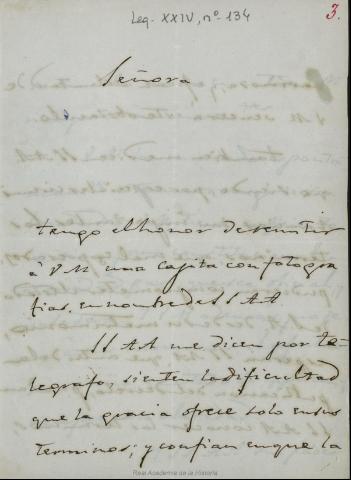 Leg. XXIV, nº 134
3.
Señora
tengo el honor de remitir
á V M una cajita con fotogra
fias, en nombre de S S A A
S S A A me dicen por te-
legrafo, sienten la dificultad
que la gracia ofrece solo en sus
terminos; y confian en que la
Real Academia de la Historia